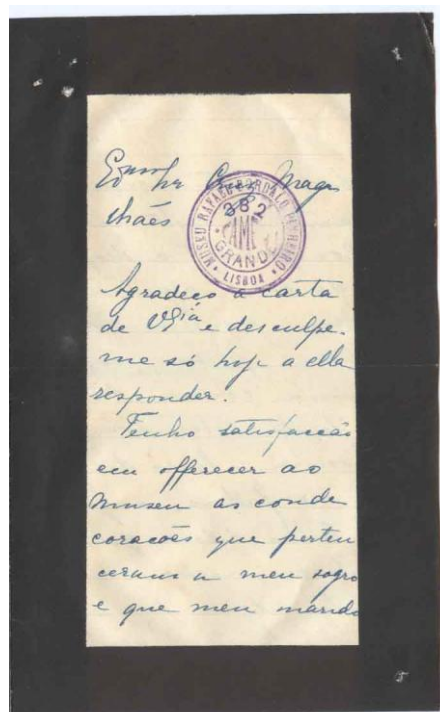 Exmo Sr Cruz Maga
lhães
MUSEU RAFAEL BORDALO PINHEIRO
382
CAMPO
GRANDE
LISBOA
Agradeço a carta
de VExia e desculpe-
me só hoje a ella
responder.
Tenho satisfacção
em offerecer ao
Museu as conde
corações que perten
ceram a meu sogro
e que meu marido